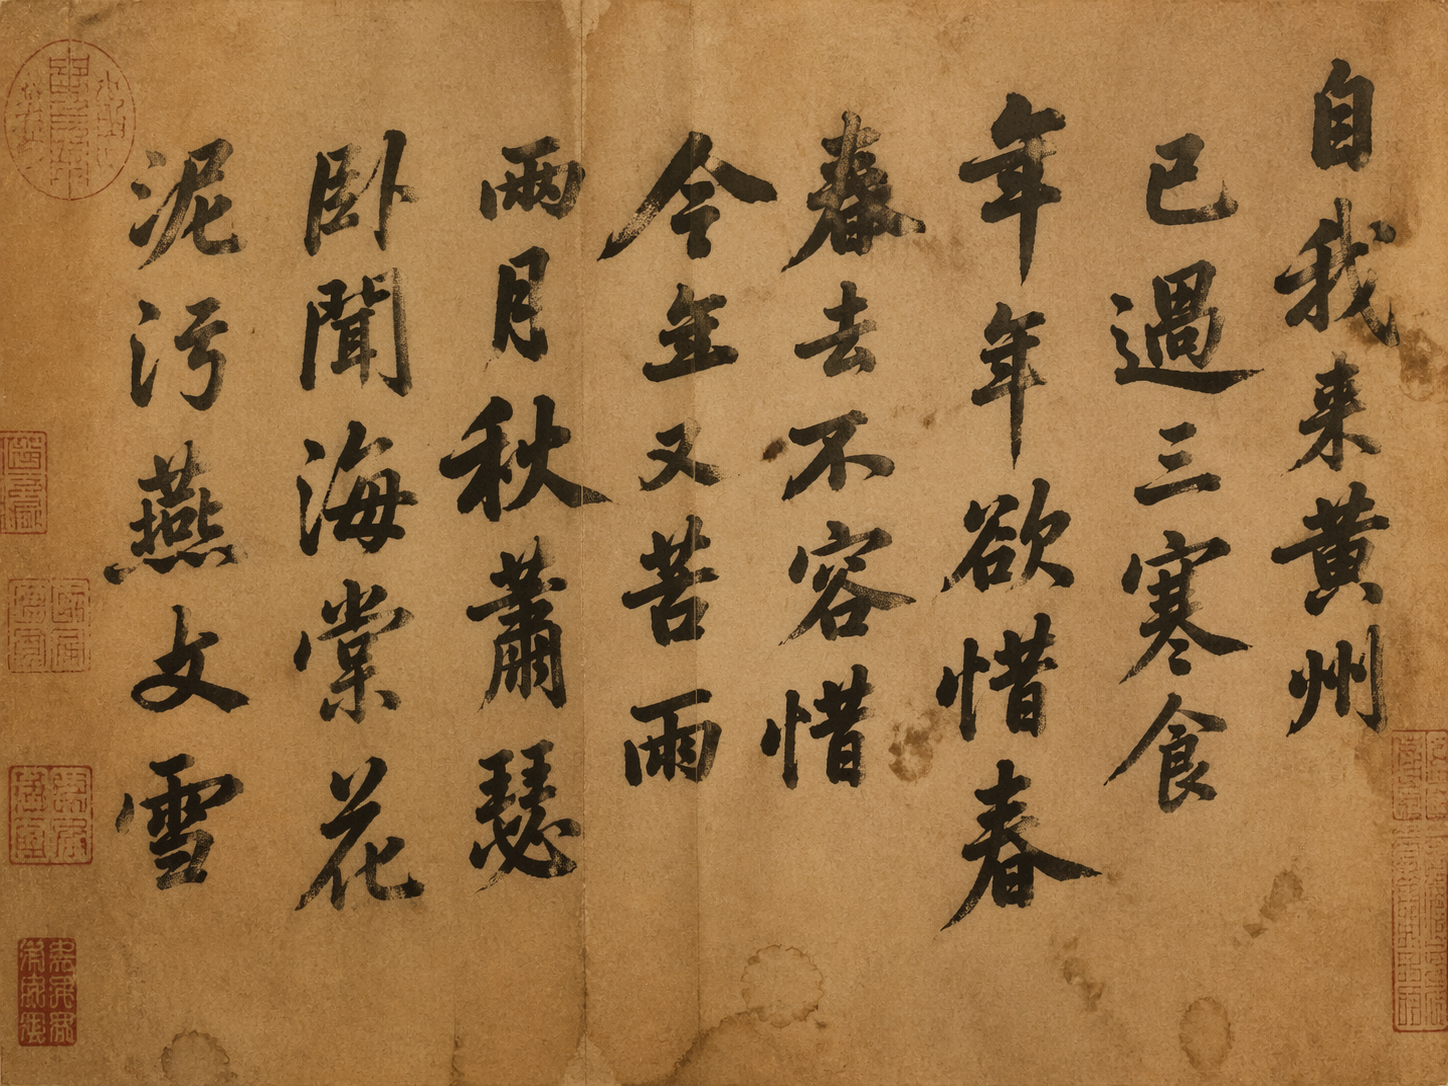 自我来黄州
已過三寒食
年年欲惜春
春去不容惜
今年又苦雨
兩月秋蕭瑟
卧聞海棠花
泥污燕文雪